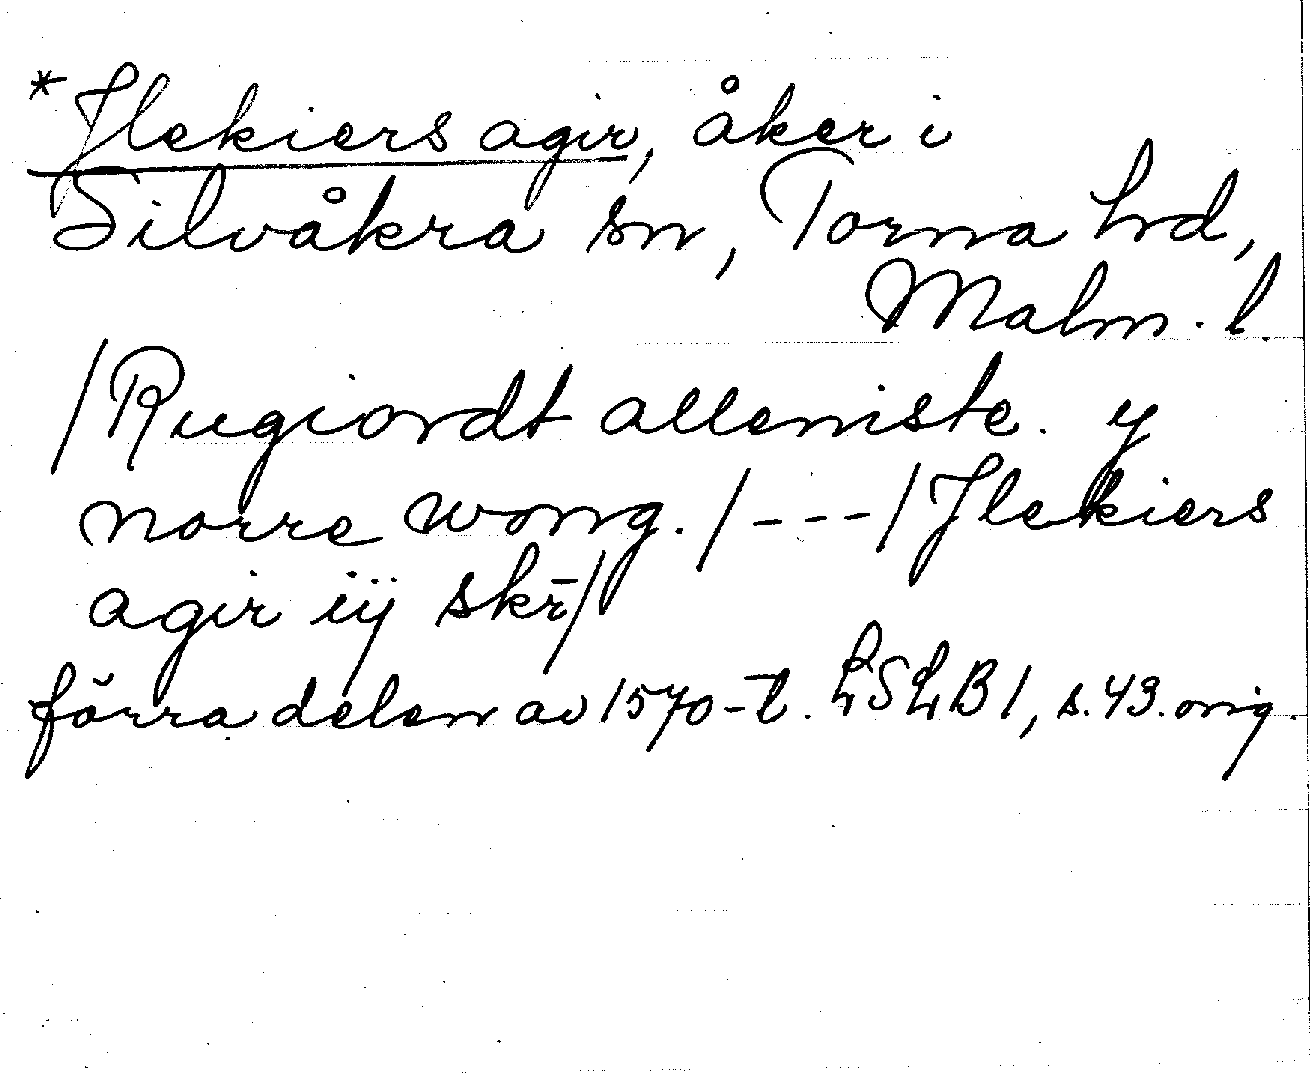 *Jlekiers agir, åker i
Silvåkra sn, Torna hd,
Malm. l.
/Rugiordt alleniste. y
norre wong./---/Jlekiers
agir iÿ skr̄/
förra delen av 1570-t. LSLB 1, s.43.orig.